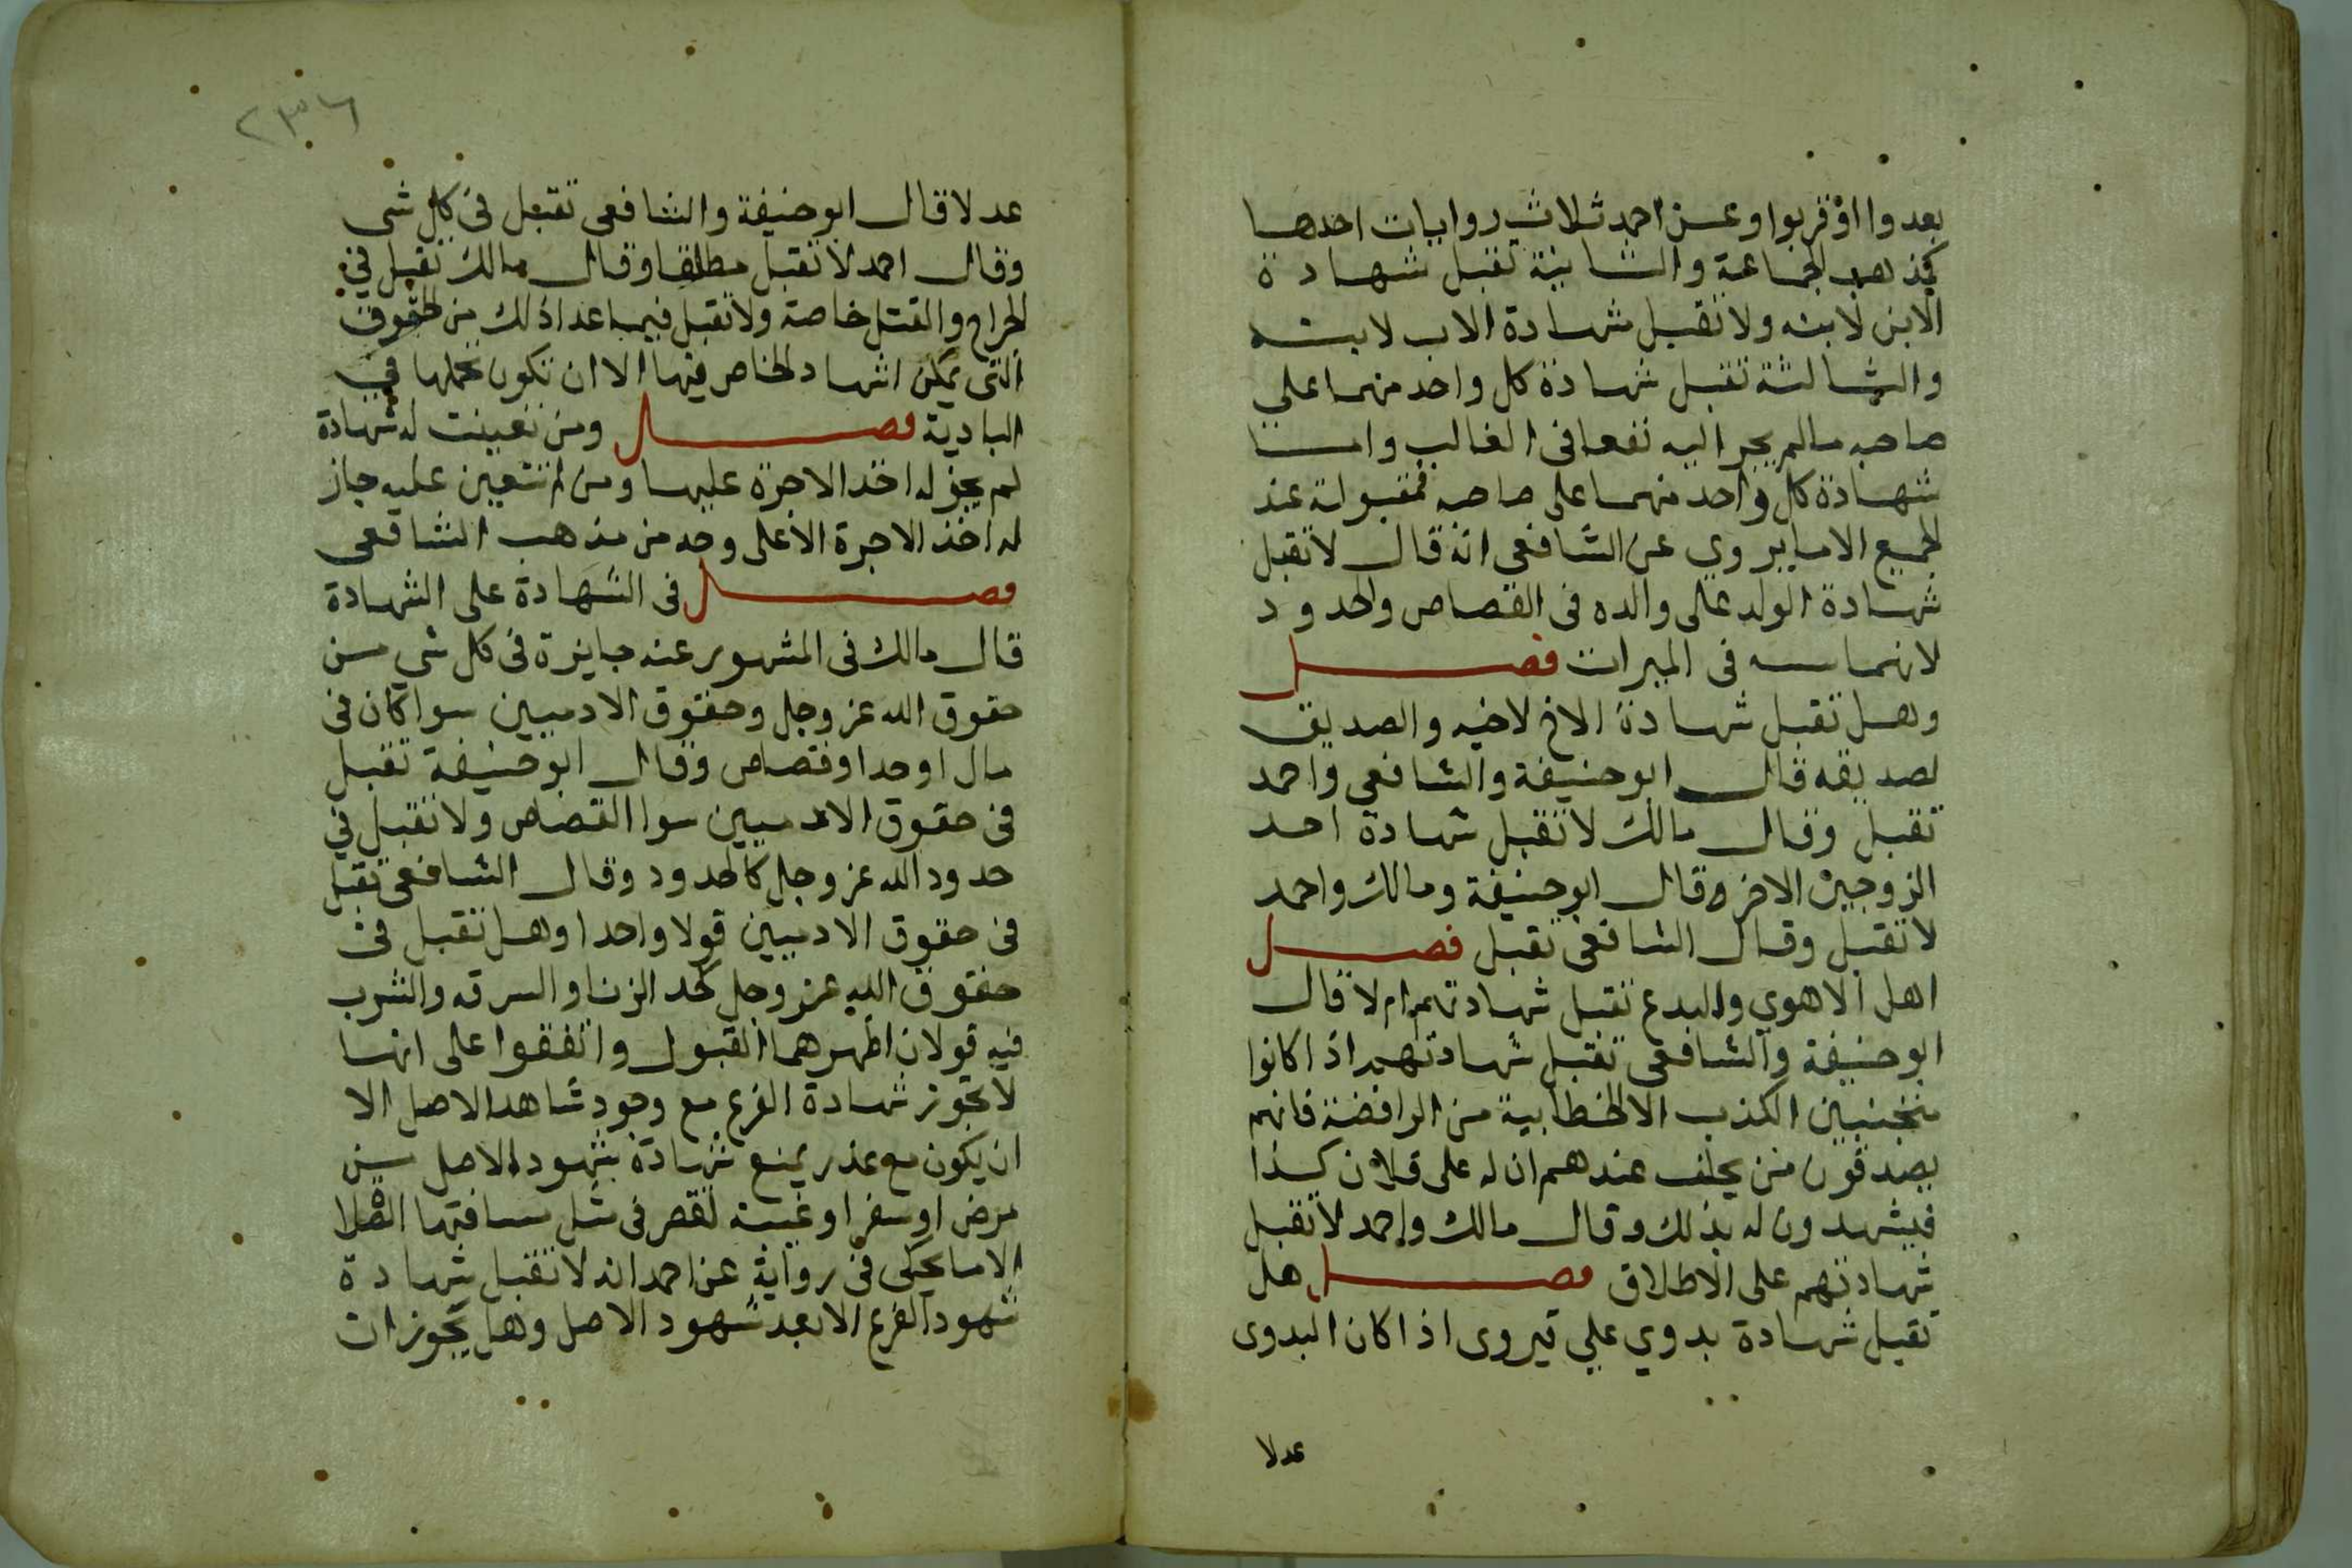 بعدوا او قربوا وعن احمد ثلاث روايات احدها
كمذهب الجماعة والثانية تقبل شهادة
الابن لابنه ولا تقبل شهادة الاب لابنه
والثالثة تقبل شهادة كل واحد منهما علي
صاحبه مالم يجر اليه نفعا فى الغالب واما
شهادة كل واحد منهما على صاحبه فمقبولة عند
الجميع الا ما يروي عن الشافعى انه قال لا تقبل
شهادة الولد على والده فى القصاص والحدود
لاتهامه فى الميراث فصل
وهل تقبل شهادة الاخ لاخيه والصديق
لصديقه قال ابوحنيفة والشافعي واحمد
تقبل وقال مالك لا تقبل شهادة احد
الزوجين الاخر وقال ابوحنيفة ومالك واحمد
لا تقبل وقال الشافعى تقبل فصل
اهل الاهوي والبدع تقبل شهادتهم ام لا قال
ابوحنيفة والشافعى تقبل شهادتهم اذا كانوا
متجنبين الكذب الا الخطابية من الرافضة فانهم
يصدقون من يحلف عندهم ان له على فلان كذا
فيشهدون له بذلك وقال مالك واحمد لا تقبل
شهادتهم على الاطلاق فصل هل
تقبل شهادة بدوي علي قروى اذا كان البدوى
عدلا
٢٣٦
عدلا قال ابوحنيفة والشافعى تقبل فى كل شى
وقال احمد لا تقبل مطلقا وقال مالك تقبل في
الجراح والقتل خاصة ولا تقبل فيما عدا ذلك من الحقوق
التى يمكن اشهاد الحاضر فيها الا ان تكون تحملها في
البادية فصل ومن تعينت له شهادة
لم يجز له اخذ الاجرة عليها ومن لم تتعين عليه جاز
له اخذ الاجرة الا على وجه من مذهب الشافعى
فصل فى الشهادة على الشهادة
قال مالك فى المشهور عنه جايزة فى كل شي من
حقوق الله عز وجل وحقوق الادميين سوا كان فى
مال او حد او قصاص وقال ابوحنيفة تقبل
فى حقوق الادميين سوا القصاص ولا تقبل في
حدود الله عز وجل كالحدود وقال الشافعى تقبل
فى حقوق الادميين قولا واحدا وهل تقبل فى
حقوق الله عز وجل كحد الزنا والسرقه والشرب
فيه قولان اظهرهما القبول واتفقوا على انها
لا تجوز شهادة الفرع مع وجود شاهد الاصل الا
ان يكون مع عذر يمنع شهادة شهود الاصل من
مرض او سفر او غيبته تقصر فى مثل مسافتها الصلاة
الا ما يحكى فى رواية عن احمد انه لا تقبل شهادة
شهود الفرع الا بعد شهود الاصل وهل يجوز ان